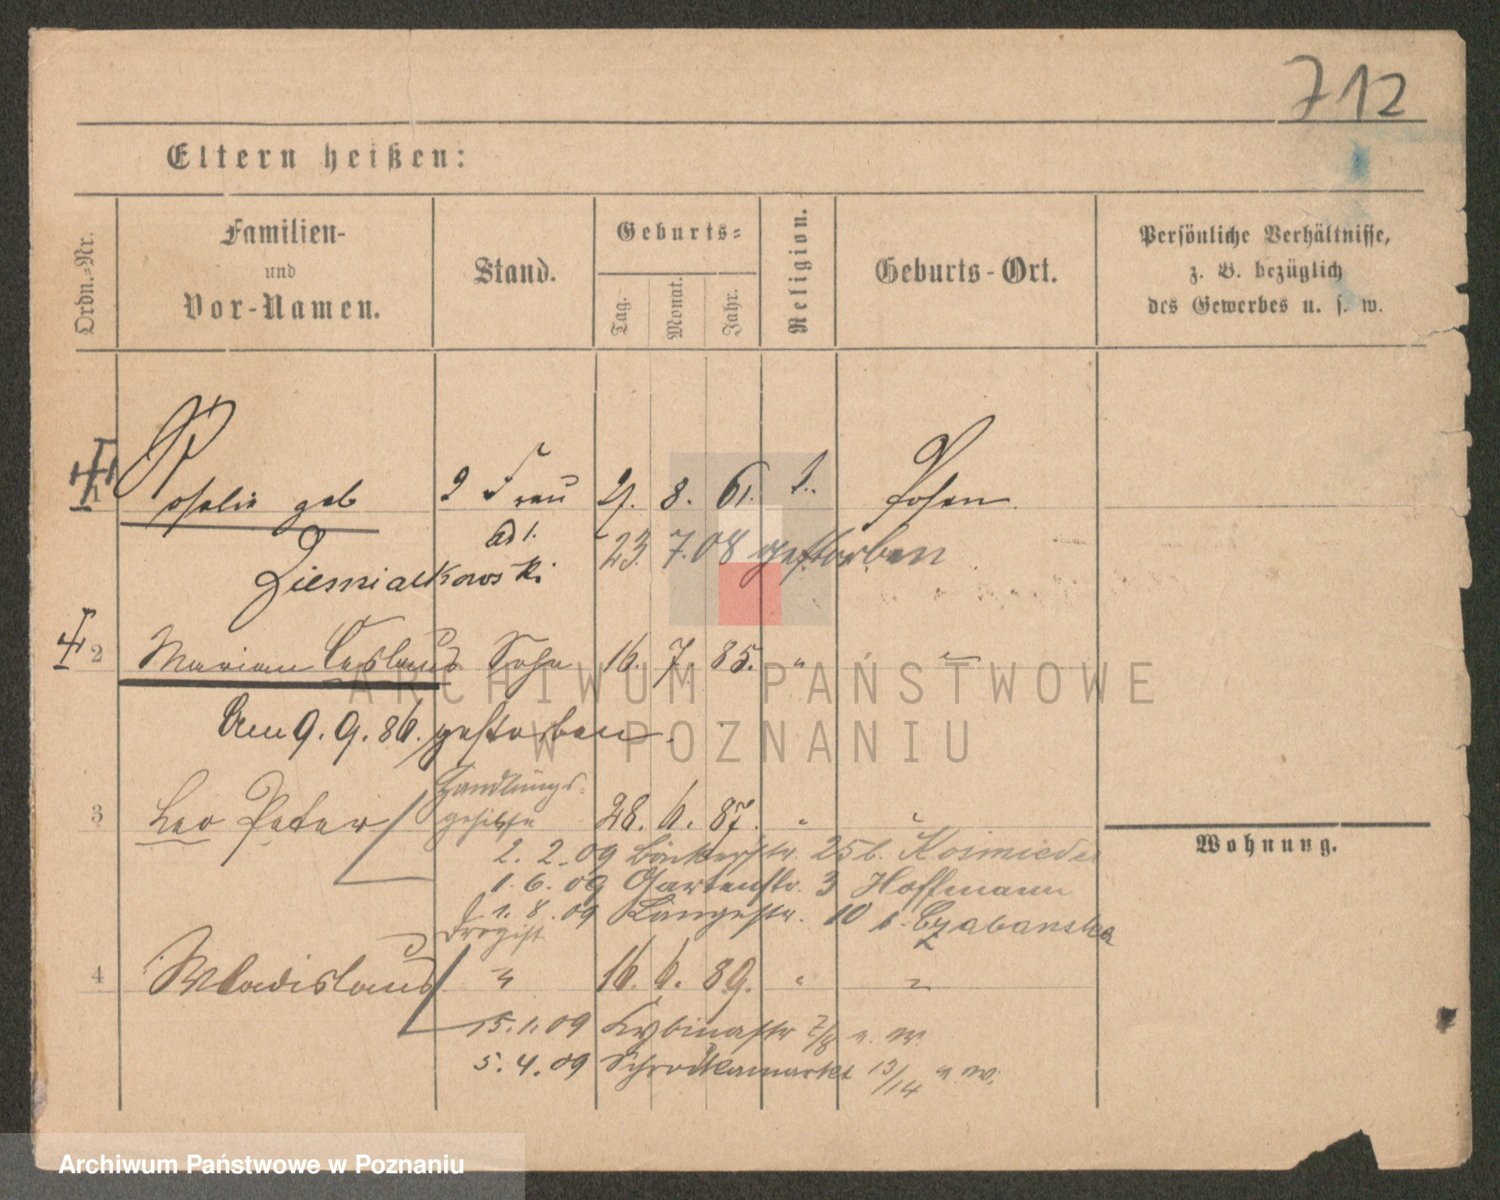 712
Eltern heißen:
Ordn.-Nr.
Familien-
und
Vor-Namen.
Stand.
Geburts-
Tag.
Monat.
Jahr.
Religion.
Geburts-Ort.
Persönliche Verhältnisse,
z. B. bezüglich
des Gewerbes u. s. w.
1 Rosalie geb Frau 8. 61. Posen
Ziemialkowski 23. 7. 08 gestorben
2 Marian Ceslaus Sohn 16. 7. 85. "
Am 9. 9. 86. gestorben.
3 Leo Peter Handlungs-
gehilfe 28. 6. 87. " "
2. 2. 09 Bäckerstr. 25 b. Kosmieder
1. 6. 09 Gartenstr. 3 Hoffmann
1. 8. 09 Langestr. 10 b. Czabanska
Drogist
4 Wladislaus " 16. 6. 89. " "
15. 1. 09 Cybinastr 7/8
5. 4. 09 Schrodkamarkt 13/14
Wohnung.
ARCHIWUM PAŃSTWOWE
W POZNANIU
Archiwum Państwowe w Poznaniu